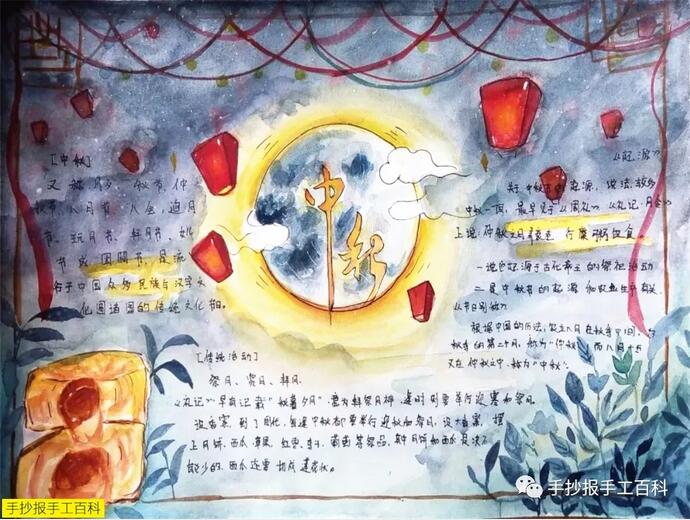 中秋
[中秋]
又称 夕、秋节、仲
秋节、八月节、八月会、追月
节、玩月节、拜月节、
节或团圆节、是流
行于中国众多民族与汉字文
化圈诸国的传统文化节
《起源》
关于中秋 起源, 说法
中秋一词, 最早见于《周礼》《礼记·月令》
上说:仲秋之月养衰老 行糜粥饮食
一说它起源于古代帝王的祭祀活动
二是中秋节的起源 和农业生产有关
《节日别称》
根据中国的历法,农历八月在秋季中间,为
秋季的第二个月,称为"仲秋"而八月十五
又在仲秋之中,称为"中秋".
[传统活动]
祭月、赏月、拜月
《礼记》早有记载"秋暮夕月" 意为拜祭月神,逢时则要举行迎寒和祭月
设香案 到了周代,每逢中秋都要举行迎秋和祭月,设大香案,摆
上月饼、西瓜、 、红枣、李子、葡萄等祭品,其中月饼和西瓜是决不
能少的、西瓜还要切成莲花状.
手抄报手工百科
手抄报手工百科